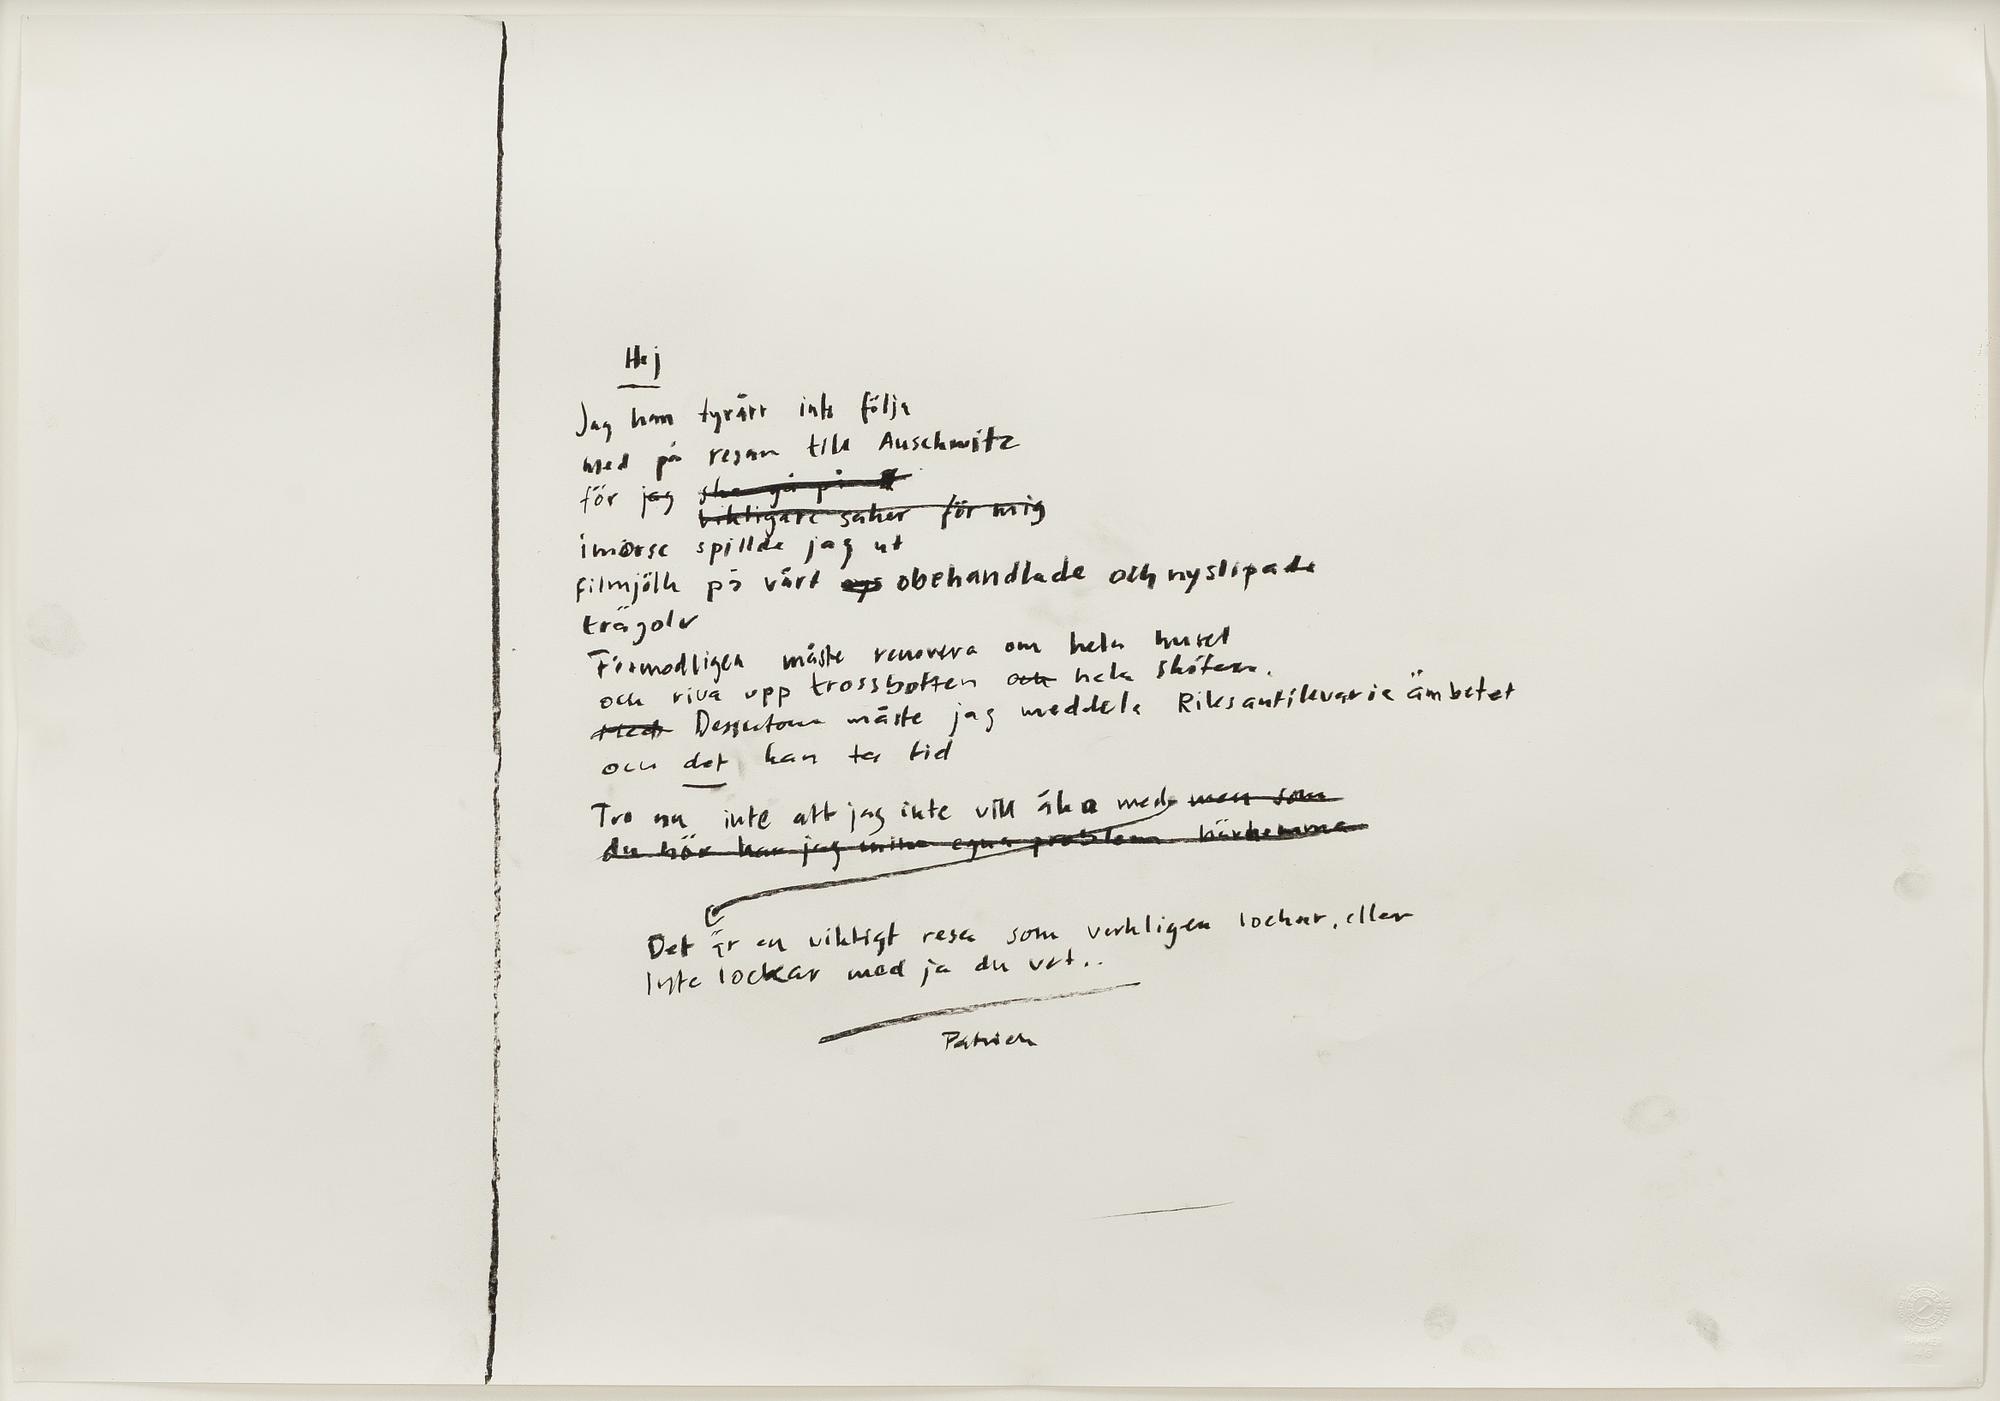 Hej
Jag kan tyvärr inte följa
med på resan till Auschwitz
för jag ska gå på
viktigare saker för mig
imorse spillde jag ut
filmjölk på vårt obehandlade och nyslipade
trägolv
Förmodligen måste renovera om hela huset
och riva upp trossbotten och hela skiten.
Dessutom måste jag meddela Riksantikvarieämbetet
och det kan ta tid
Tro nu inte att jag inte vill åka med men som
du hör har jag mina egna problem härhemma
Det är en viktigt resa som verkligen lockar, eller
inte lockar med ja du vet..
Patrick